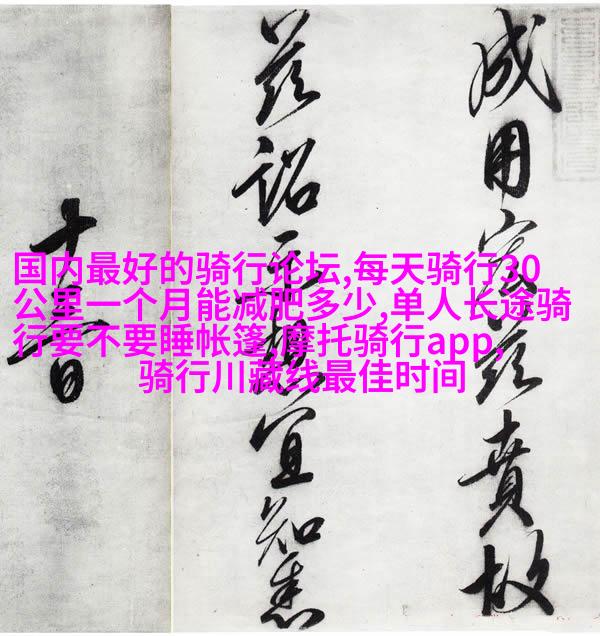 国内最好的骑行论坛,每天骑行30
公里一个月能减肥多少,单人长途骑
行要不要睡帐篷,摩托骑行app,
骑行川藏线最佳时间
成用寔茲賁故
茲詔示想宜知悉
十日